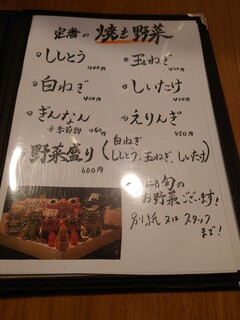 定番の 焼き野菜
ししとう 400円
玉ねぎ 400円
白ねぎ 400円
しいたけ 400円
ぎんなん ※季節物 450円
えりんぎ 450円
野菜盛り (白ねぎ
ししとう、玉ねぎ、しいたけ)
600円
旬の
お野菜ございます!
別紙 又は スタッフ
まで!